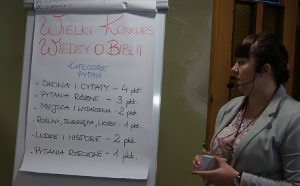 Wielki Konkurs
Wiedzy o Biblii
-Kategorie
Pytań
• Słowa i cytaty - 4 pkt.
• Pytania różne - 3 pkt.
• Miejsca i wydarzenia - 2 pkt.
• Rośliny, zwierzęta, liczby - 1 pkt.
• Ludzie i historie - 2 pkt.
• Pytania rzeczowe - 1 pkt.